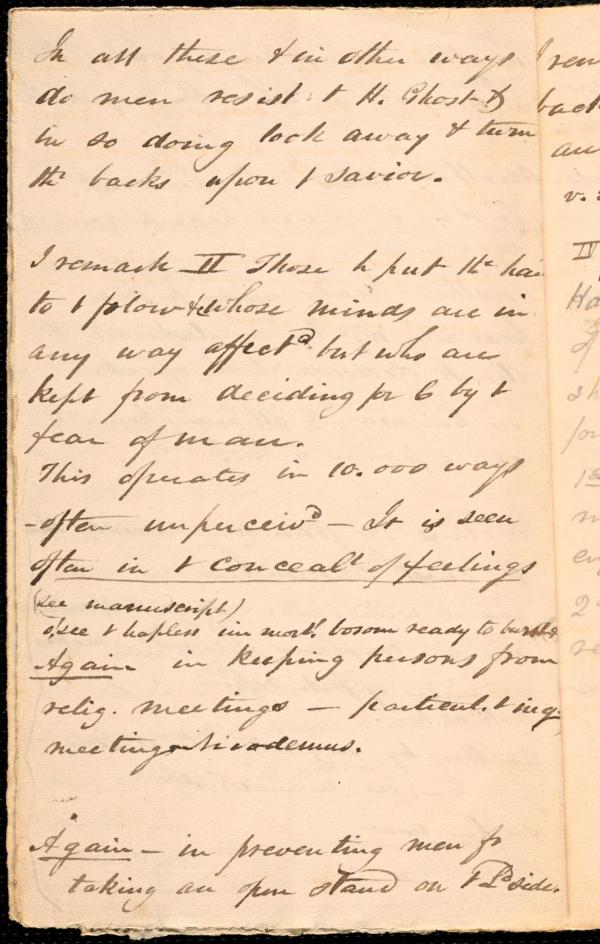 In all these & in other ways
do men resist t H. Ghost &
in so doing look away & turn
thr backs upon t Savior.
I remark II Those h put thr han
to t plow & whose minds are in
any way affectd but who are
kept from deciding for C by t
fear of man.
This operates in 10.000 ways
- often unperceivd - It is seen
often in t concealt of feelings
(see manuscript)
o! see t hapless bosom ready to burst &
Again in keeping persons from
relig. meetings - particul. t inq.
meetings Nicodemus.
Again - in preventing men fr
taking an open stand on t Lds side.
I rem
back
an
v.
IV
Ha
sh
for
1st
en
2d
re